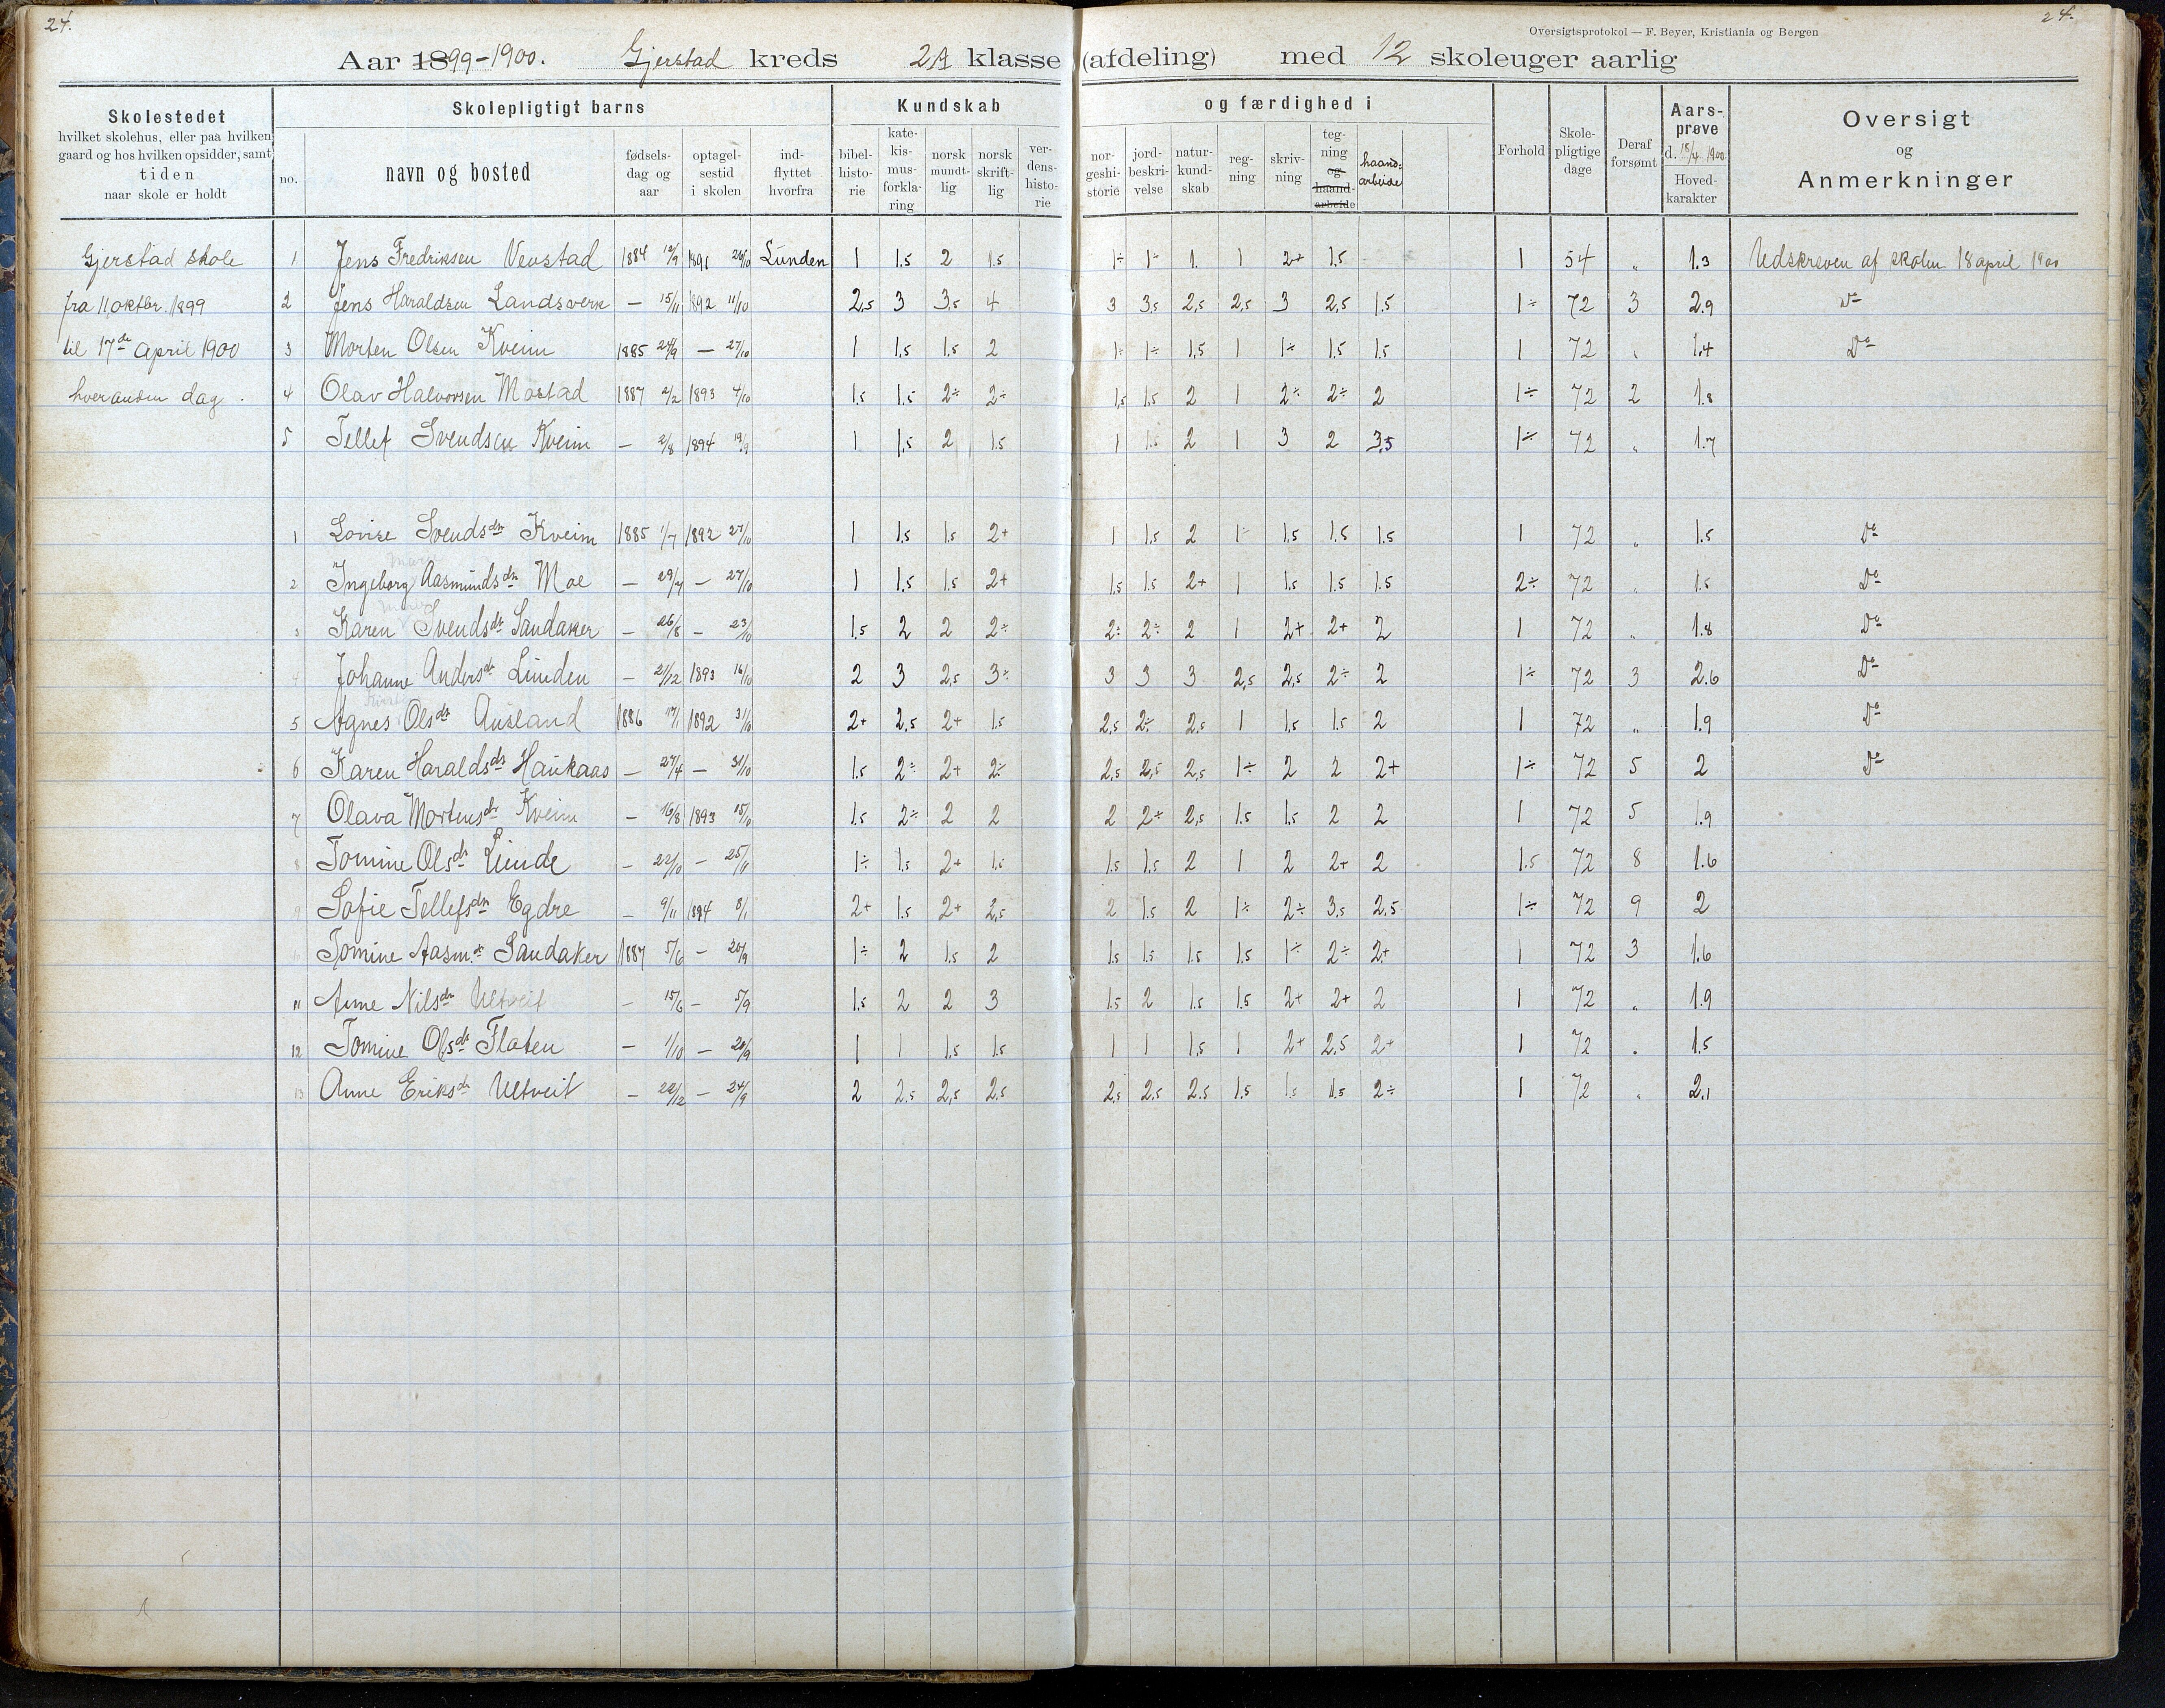 24.
24.
Oversigtsprotokol — F. Beyer, Kristiania og Bergen
Aar 1899-1900. Gjerstad kreds 2A klasse (afdeling) med 12 skoleuger aarlig
Skolestedet
hvilket skolehus, eller paa hvilken
gaard og hos hvilken opsidder, samt
tiden
naar skole er holdt
Skolepligtigt barns
no.
navn og bosted
fødsels-
dag og
aar
optagel-
sestid
i skolen
ind-
flyttet
hvorfra
Kundskab og færdighed i
bibel-
histo-
rie
kate-
kis-
mus-
forkla-
ring
norsk
mundt-
lig
norsk
skrift-
lig
ver-
dens-
histo-
rie
nor-
geshi-
storie
jord-
beskri-
velse
natur-
kund-
skab
reg-
ning
skriv-
ning
teg-
ning
og
haand-
arbeide
haand-
arbeide
Forhold
Skole-
pligtige
dage
Deraf
forsømt
Aars-
prøve
d. 18/4 1900
Hoved-
karakter
Oversigt
og
Anmerkninger
Gjerstad skole 1 Jens Fredriksen Vevstad 1884 12/9 1891 26/10 Lunden 1 1.5 2 1.5 1÷ 1÷ 1. 1 2+ 1.5 1 54 „ 1.3 Udskreven af skolen 18 april 1900
fra 11 oktbr. 1899 2 Jens Haraldsen Landsverk — 15/11 1892 11/10 2,5 3 3,5 4 3 3,5 2,5 2,5 3 2,5 1.5 1÷ 72 3 2.9 Do
til 17de april 1900 3 Morten Olsen Kveim 1885 24/9 — 27/10 1 1,5 1.5 2 1÷ 1÷ 1,5 1 1÷ 1.5 1.5 1 72 „ 1.4 Do
hver anden dag. 4 Olav Halvorsen Mostad 1887 2/2 1893 4/10 1.5 1.5 2÷ 2÷ 1,5 1.5 2 1 2÷ 2÷ 2 1÷ 72 2 1.8
5 Tellef Svendsen Kveim — 2/8 1894 19/9 1 1,5 2 1.5 1 1.5 2 1 3 2 3,5 1÷ 72 „ 1.7
1 Lovise Svendsdtr Kveim 1885 1/7 1892 27/10 1 1.5 1.5 2+ 1 1.5 2 1÷ 1.5 1.5 1.5 1 72 „ 1.5 Do
2 Ingeborg Aasmundsdtr Moe — 29/7 — 27/10 1 1.5 1.5 2+ 1.5 1.5 2+ 1 1.5 1.5 1.5 2÷ 72 „ 1.5 Do
3 Karen Svendsdtr Sandaker — 26/8 — 23/10 1.5 2 2 2÷ 2÷ 2÷ 2 1 2+ 2+ 2 1 72 „ 1.8 Do
4 Johanne Andersdtr Lunden — 21/12 1893 16/10 2 3 2,5 3÷ 3 3 3 2,5 2,5 2÷ 2 1÷ 72 3 2.6 Do
5 Agnes Olsdtr Ausland 1886 17/1 1892 31/10 2+ 2,5 2+ 1.5 2,5 2÷ 2,5 1 1.5 1.5 2 1 72 „ 1.9 Do
6 Karen Haraldsdtr Haukaas — 27/4 — 31/10 1.5 2÷ 2+ 2÷ 2,5 2,5 2,5 1÷ 2 2 2+ 1÷ 72 5 2 Do
7 Olava Mortensdtr Kveim — 16/8 1893 15/10 1.5 2÷ 2 2 2 2+ 2,5 1.5 1.5 2 2 1 72 5 1.9
8 Tomine Olsdtr Lunde — 22/10 — 25/11 1÷ 1.5 2+ 1.5 1.5 1.5 2 1 2 2+ 2 1.5 72 8 1.6
9 Sofie Tellefsdtr Egdre — 9/11 1894 8/1 2+ 1.5 2+ 2,5 2 1.5 2 1÷ 2÷ 3,5 2.5 1÷ 72 9 2
10 Tomine Aasm.dtr Sandaker 1887 5/6 — 20/9 1÷ 2 1.5 2 1.5 1.5 1.5 1.5 1÷ 2÷ 2+ 1 72 3 1.6
11 Anne Nilsdtr Ultveit — 15/6 — 5/9 1.5 2 2 3 1.5 2 1.5 1.5 2+ 2+ 2 1 72 „ 1.9
12 Tomine Olsdtr Flaten — 1/10 — 20/9 1 1 1.5 1.5 1 1 1.5 1 2+ 2.5 2+ 1 72 „ 1.5
13 Anne Eriksdtr Ultveit — 22/12 — 24/9 2 2.5 2,5 2.5 2,5 2.5 2.5 1.5 1.5 1.5 2÷ 1 72 „ 2.1